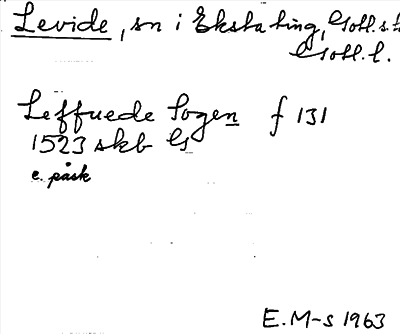 Levide, sn i Eksta ting, Gotl. s.
Gotl. l.
Leffuede Sogen f 131
1523 skb G
e. påsk
E. M-s 1963